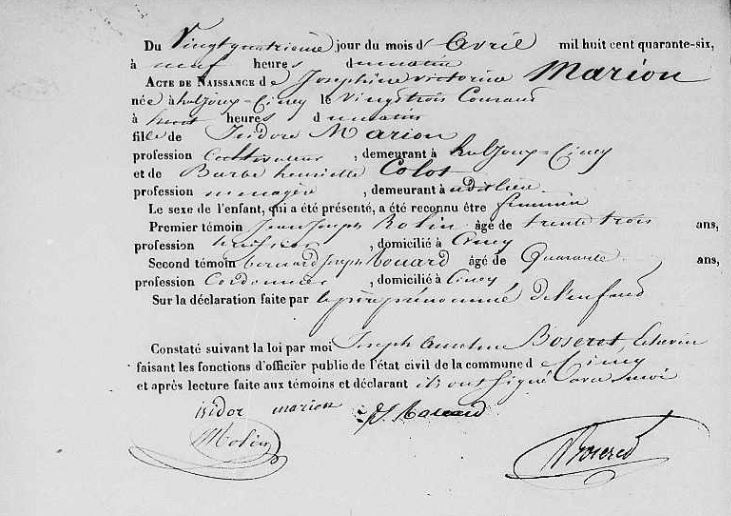 Du Vingtquatrième jour du mois d' Avril mil huit cent quarante-six,
à neuf heures d u matin
ACTE DE NAISSANCE de Josephine victorine Marion
née à Ciney le vingttrois Courant
à heures d u matin
fille de Isidore Marion
profession Cultivateur, demeurant à Ciney
et de Barbe henriette Colot
profession menagère, demeurant audit lieu
Le sexe de l'enfant, qui a été présenté, a été reconnu être féminin
Premier témoin Jean Joseph Rolin âgé de trente trois ans,
profession huissier, domicilié à Ciney
Second témoin bernard Joseph âgé de Quarante ans,
profession Cordonnier, domicilié à Ciney
Sur la déclaration faite par le père prénommé de l'enfant
Constaté suivant la loi par moi Joseph Boseret, Echevin
faisant les fonctions d'officier public de l'état civil de la commune d e Ciney
et après lecture faite aux témoins et déclarant ils ont signé avec moi
isidor marion
Rolin
Boseret